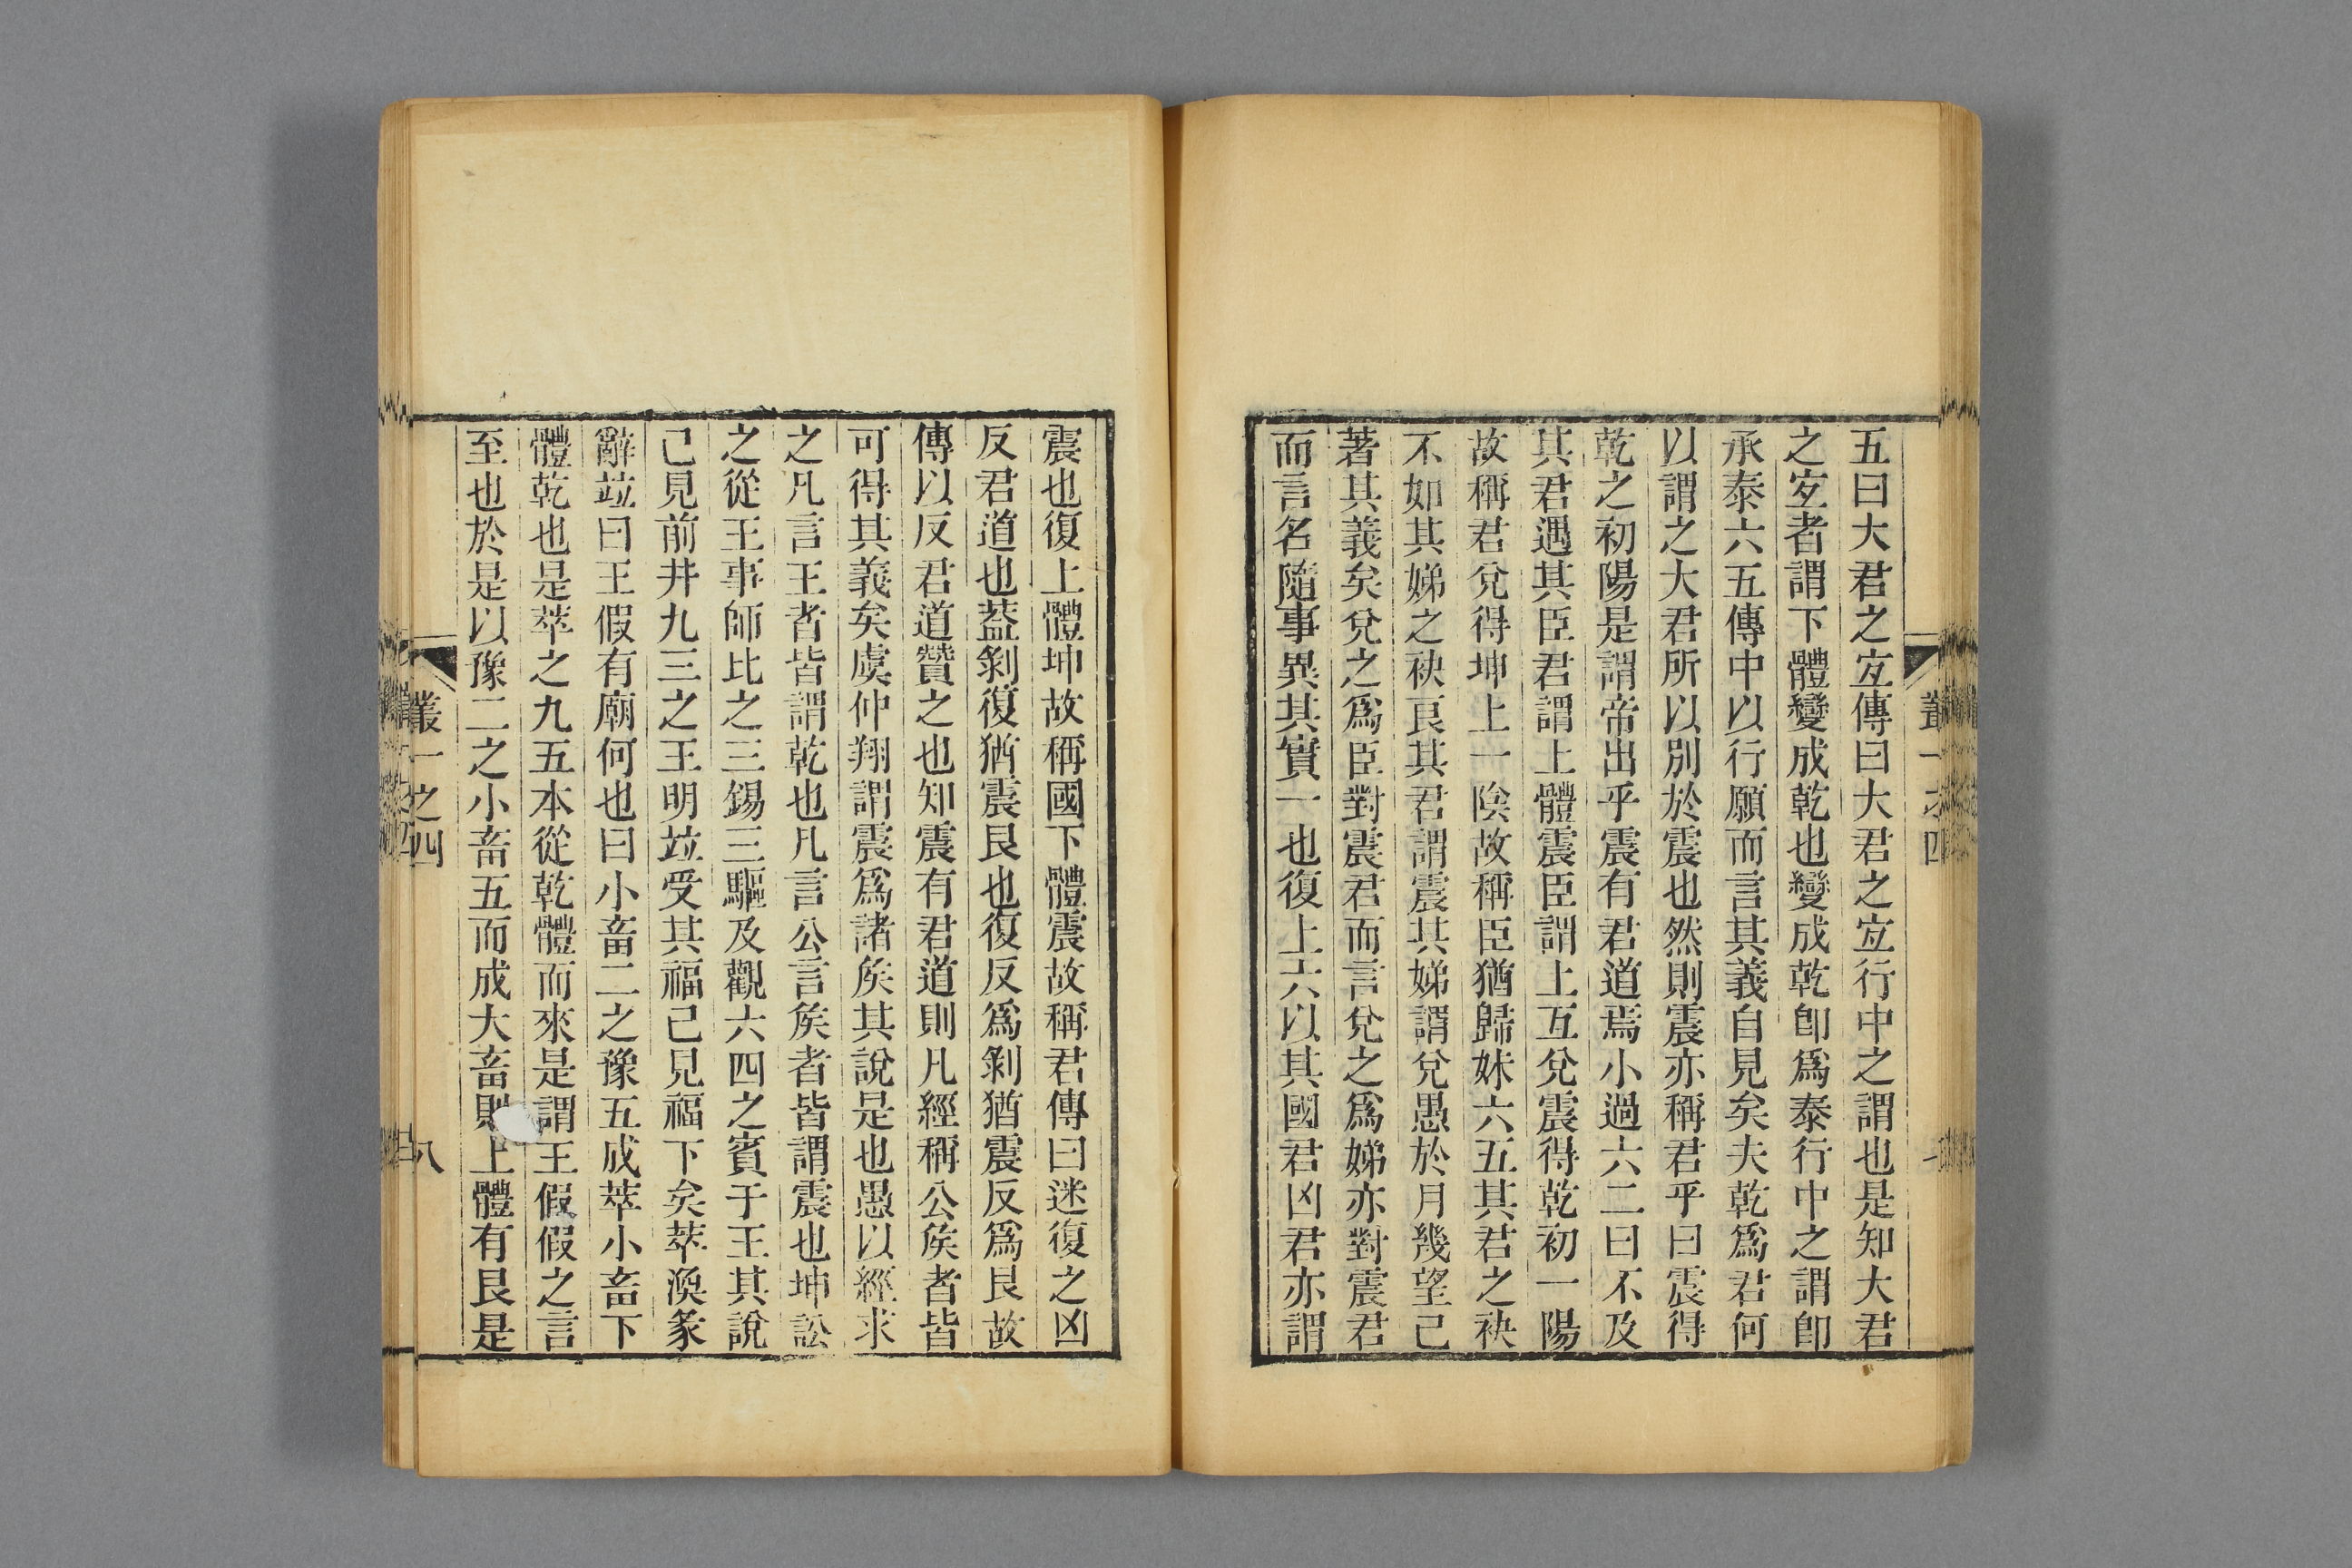 五曰大君之宐傳曰大君之宐行中之謂也是知大君
之宐者謂下體變成乾也變成乾卽爲泰行中之謂卽
承泰六五傳中以行願而言其義自見矣夫乾爲君何
以謂之大君所以別於震也然則震亦稱君乎曰震得
乾之初陽是謂帝出乎震有君道焉小過六二曰不及
其君遇其臣君謂上體震臣謂上互兌震得乾初一陽
故稱君兌得坤上一陰故稱臣猶歸妹六五其君之袂
不如其娣之袂良其君謂震其娣謂兌愚於月幾望已
著其義矣兌之爲臣對震君而言兌之爲娣亦對震君
而言名隨事異其實一也復上六以其國君凶君亦謂
叢一之四
震也復上體坤故稱國下體震故稱君傳曰迷復之凶
反君道也葢剝復猶震艮也復反爲剝猶震反爲艮故
傳以反君道贊之也知震有君道則凡經稱公矦者皆
可得其義矣虞仲翔謂震爲諸矦其說是也愚以經求
之凡言王者皆謂乾也凡言公言矦者皆謂震也坤訟
之從王事師比之三錫三驅及觀六四之賓于王其說
已見前井九三之王明竝受其福已見福下矣萃渙彖
辭竝曰王假有廟何也曰小畜二之豫五成萃小畜下
體乾也是萃之九五本從乾體而來是謂王假假之言
至也於是以豫二之小畜五而成大畜則上體有艮是
叢一之四
八